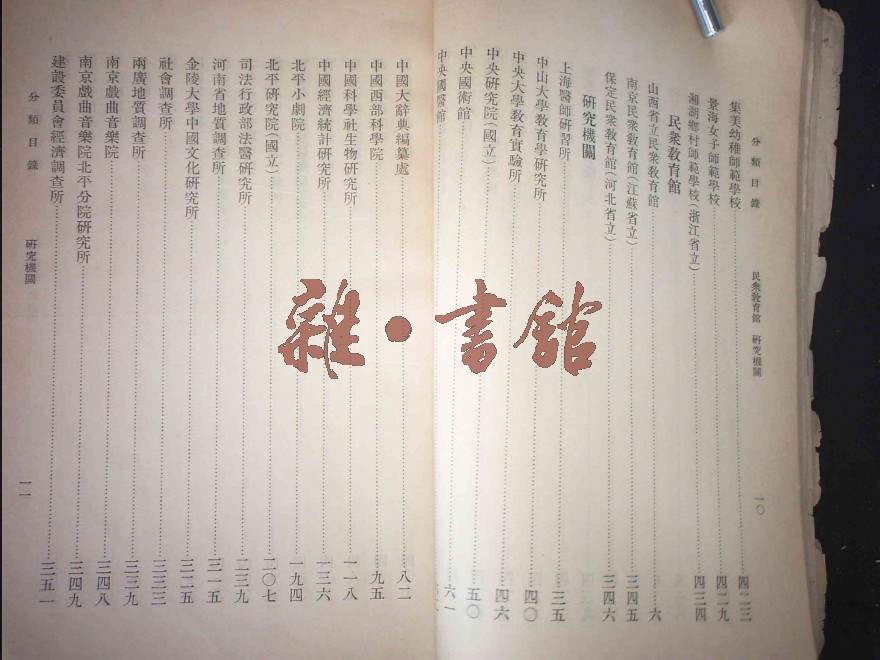 分類目錄　民衆敎育館　研究機關　一〇
集美幼稚師範學校……四二三
景海女子師範學校……四二九
湘湖鄉村師範學校(浙江省立)……四三四
民衆敎育館
山西省立民衆敎育館……六
南京民衆敎育館(江蘇省立)……三四五
保定民衆敎育館(河北省立)……三四六
研究機關
上海醫師硏習所……三五
中山大學敎育學研究所……四〇
中央大學敎育實驗所……四六
中央研究院(國立)……五〇
中央國術館……六一
中央國醫館
中國大辭典編纂處……八二
中國西部科學院……九五
中國科學社生物研究所……一一八
中國經濟統計研究所……一三六
北平小劇院……一九四
北平研究院(國立)……二〇七
司法行政部法醫研究所……二三九
河南省地質調查所……三一五
金陵大學中國文化研究所……三二五
社會調查所……三三三
兩廣地質調查所……三三九
南京戲曲音樂院……三四八
南京戲曲音樂院北平分院研究所……三四九
建設委員會經濟調查所……三五一
分類目錄　研究機關　一一
雜·書館